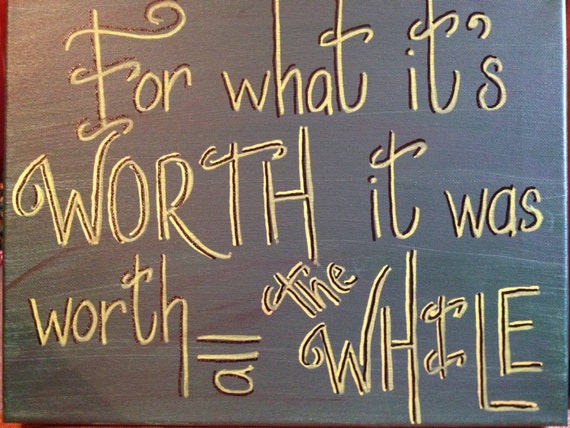 For what it's
WORTH it was
worth all the WHILE